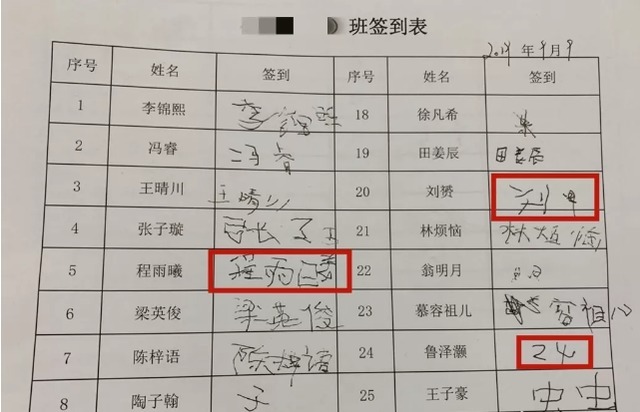 班签到表
2019年9月9
序号 姓名 签到 序号 姓名 签到
1 李锦熙 李锦熙 18 徐凡希
2 冯睿 冯睿 19 田姜辰 田姜辰
3 王晴川 王晴川 20 刘赟 刘
4 张子璇 张子 21 林烦恼 林烦恼
5 程雨曦 程雨曦 22 翁明月
6 梁英俊 梁英俊 23 慕容祖儿 容祖儿
7 陈梓语 陈梓语 24 鲁泽灏 24
8 陶子翰 子 25 王子豪 虫虫